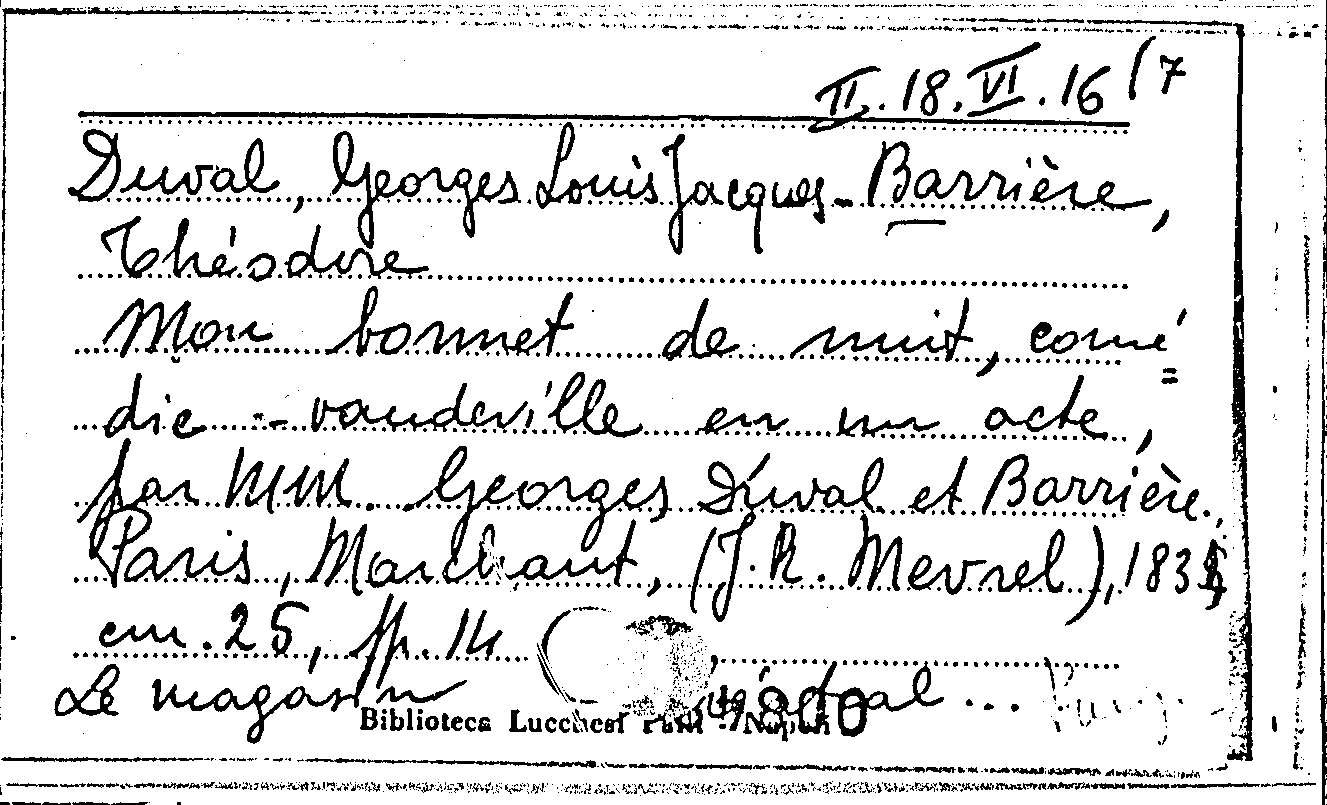 II.18.VI.16/7
Duval, Georges Louis Jacques - Barrière,
Théodore
Mon bonnet de nuit, comé=
die - vaudeville en un acte,
par MM. Georges Duval et Barrière.
Paris, Marchant, (J. R. Mevrel), 183
cm. 25, pp. 14
Le magasin ...
Biblioteca Lucchesi Palli - Napoli